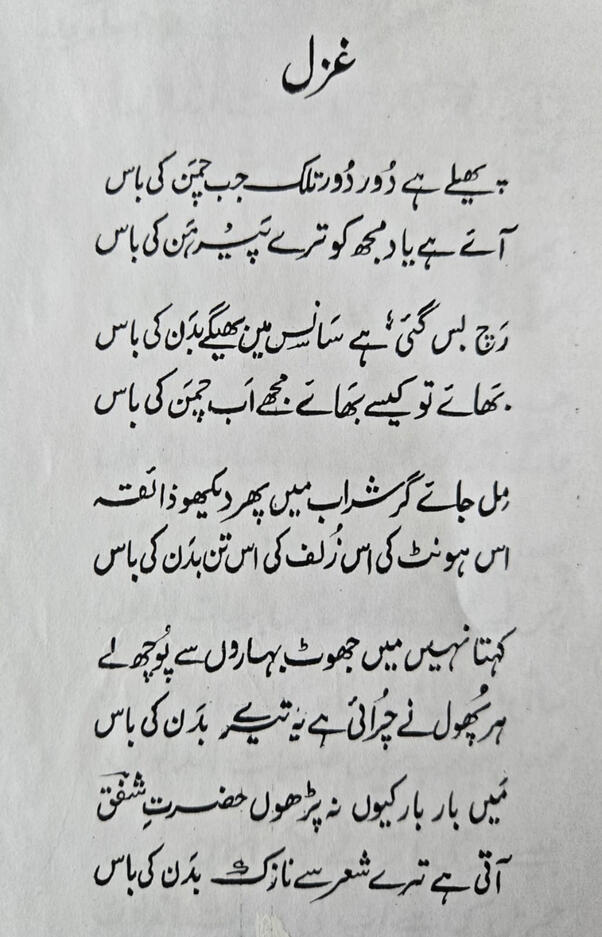 غزل
پھیلے ہے دُور دُور تلک جب چمَن کی باس
آئے ہے یاد مجھ کو ترے پَیرہَن کی باس
رَچ بس گئی ہے سَانس میں بھیگے بدَن کی باس
بھَائے تو کیسے بھَائے مجھے اَب چمَن کی باس
مِل جائے گر شراب میں پھر دیکھو ذائقہ
اس ہونٹ کی اس زُلف کی اس تن بدَن کی باس
کہتا نہیں میں جھوٹ بہاروں سے پُوچھ لے
ہر پُھول نے چُرائی ہے یہ تیرے بدَن کی باس
مَیں بار بار کیوں نہ پڑھوں حضرتِ شفقؔ
آتی ہے ترے شعر سے نازک بدَن کی باس